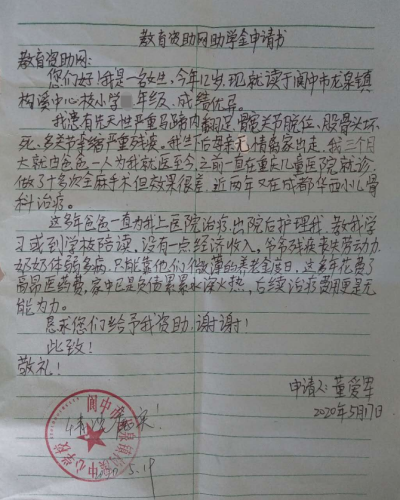 教育资助网助学金申请书
教育资助网:
您们好!我是一名女生,今年12岁,现就读于阆中市龙泉镇
构溪中心校小学 年级、成绩优异。
我患有先天性严重马蹄内翻足、髋关节脱位、股骨头坏
死、多关节挛缩严重残疾。我出生后母亲无情离家出走,我三个月
大就由爸爸一人为我就医至今,之前一直在重庆儿童医院就诊,
做了十多次全麻手术但效果很差,近两年又在成都华西小儿骨
科治疗。
这多年爸爸一直为我上医院治疗,出院后护理我、教我学
习或到学校陪读,没有一点经济收入,爷爷残疾丧失劳动力,
奶奶体弱多病,只能靠他们微薄的养老金度日,这多年花费了
高昂医药费,家中已是负债累累水深火热,后续治疗费用更是无
能为力。
恳求您们给予我资助,谢谢!
此致!
敬礼!
申请人:董爱军
2020年5月17日
情况属实!
阆中市 中心学校
2020.5.19